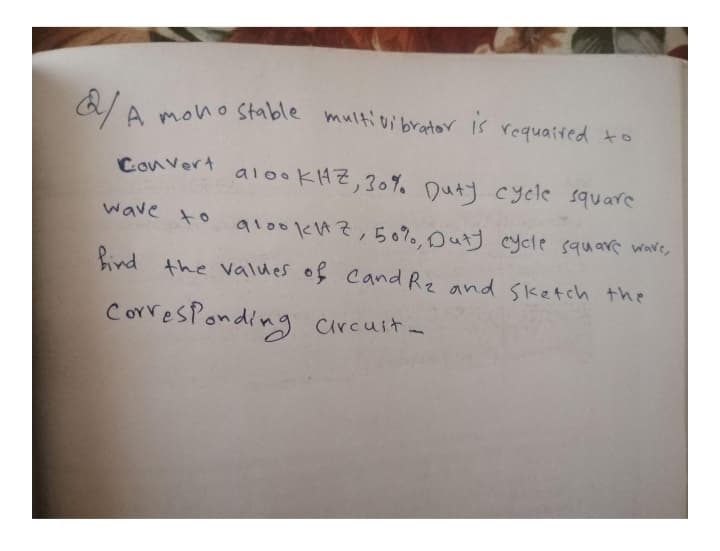 Q/ A monostable multivibrator is requaired to
Convert a 100 KHZ, 30% Duty cycle square
wave to a 100 KHZ, 50%, Duty cycle square wave,
find the values of C and R2 and sketch the
Corresponding circuit -